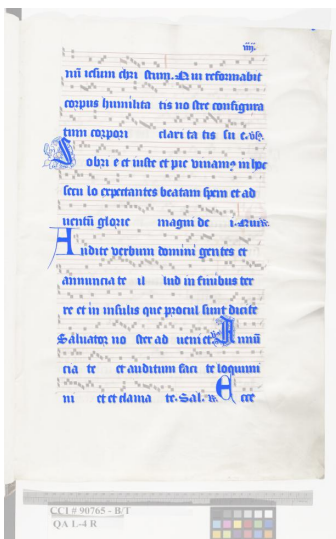 iiij.
nū iesum chri stum. Qui reformabit
corpus humilita tis no stre configura
tum corpori clari ta tis su e.
Sobri e et iuste et pie viuamꝰ in hoc
secu lo expectantes beatam spem et ad
uentū glorie magni de i. Qui.
Audite verbum domini gentes et
annuncia te il lud in finibus ter
re et in insulis que procul sunt dicite
Saluator no ster ad ueniet. Annū
cia te et auditum faci te loquimi
ni et et clama te. Sal. Ecce
CCI # 90765 - B/T
QA L-4 R